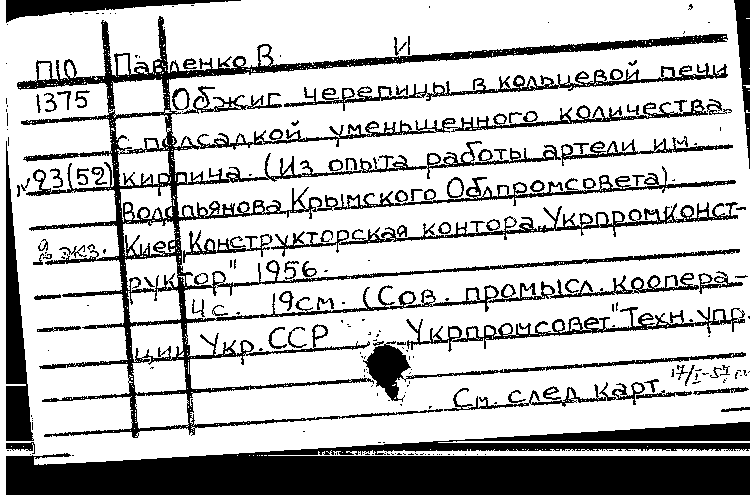 П10 Павленко, В. И
1375 Обжиг черепицы в кольцевой печи
с подсадкой уменьшенного количества
№ 93(52) кирпича. (Из опыта работы артели им.
Водопьянова, Крымского Облпромсовета).
2 экз. Киев, Конструкторская контора „Укрпромконст-
руктор", 1956.
4 с. 19 см. (Сов. промысл. коопера-
ции Укр. ССР „Укрпромсовет" Техн. упр.
См. след карт. 17/I-57 г.